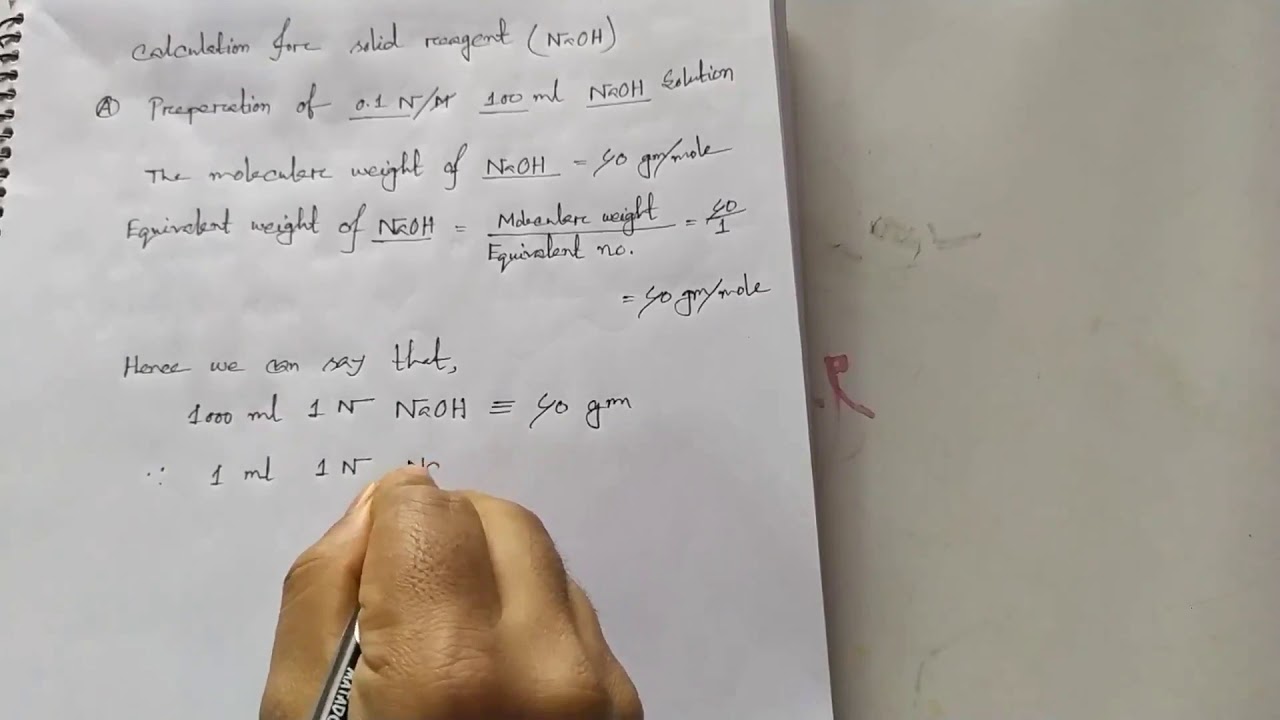 Calculation fore solid reagent (NaOH)
Ⓐ Preperation of 0.1 N/M 100 ml NaOH Solution
The moleculare weight of NaOH = 40 gm/mole
Equivalent weight of NaOH = Moleculare weight / Equivalent no. = 40/1
= 40 gm/mole
Hence we can say that,
1000 ml 1 N NaOH ≡ 40 gm
∴ 1 ml 1 N Na
MATADO